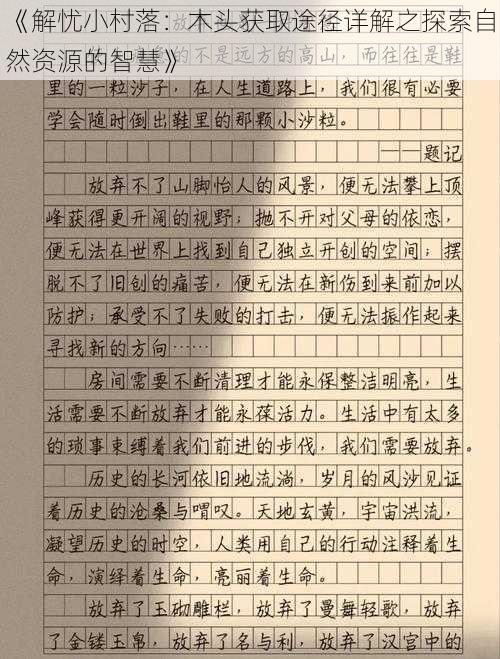 《解忧小村落：木头获取途径详解之探索自
然资源的智慧》
的不是远方的高山，而往往是鞋
里的一粒沙子，在人生道路上，我们很有必要
学会随时倒出鞋里的那颗小沙粒。
——题记
放弃不了山脚怡人的风景，便无法攀上顶
峰获得更开阔的视野；抛不开对父母的依恋，
便无法在世界上找到自己独立开创的空间；摆
脱不了旧创的痛苦，便无法在新伤到来前加以
防护；承受不了失败的打击，便无法振作起来
寻找新的方向……
房间需要不断清理才能永保整洁明亮，生
活需要不断放弃才能永葆活力。生活中有太多
的琐事束缚着我们前进的步伐，我们需要放弃。
历史的长河依旧地流淌，岁月的风沙见证
着历史的沧桑与喟叹。天地玄黄，宇宙洪流，
凝望历史的时空，人类用自己的行动注释着生
命，演绎着生命，亮丽着生命。
放弃了玉砌雕栏，放弃了曼舞轻歌，放弃
了金镂玉帛，放弃了名与利，放弃了汉宫中的